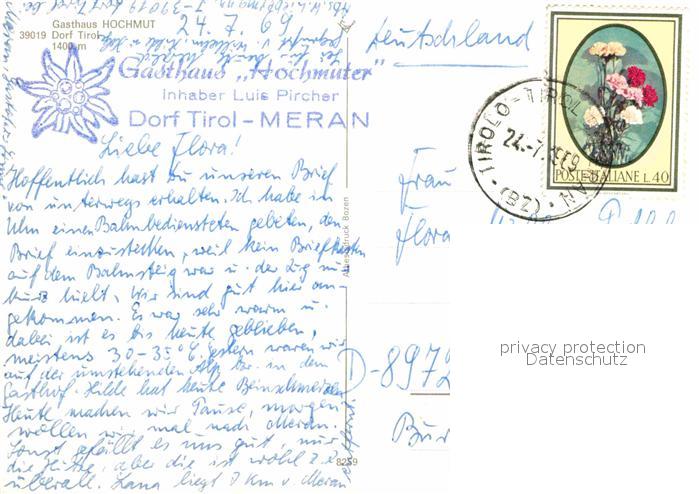 Gasthaus HOCHMUT
39019 Dorf Tirol
1400 m
24.7.69
Gasthaus „Hochmuter"
Inhaber Luis Pircher
Dorf Tirol - MERAN
Liebe Flora!
Hoffentlich hast du unseren Brief
von unterwegs erhalten. Ich habe in
Ulm einen Bahnbediensteten gebeten, den
Brief einzustecken, weil kein Briefkasten
auf dem Bahnsteig war u. der Zug nur
kurz hielt. Wir sind gut hier an-
gekommen. Es war sehr warm u.
dabei ist es bis heute geblieben,
meistens 30-35°C. Gestern waren wir
auf der umstehenden Alp bzw. in dem
Gasthof. Hilde hat heute Beinschmerzen
Heute machen wir Pause, morgen
wollen wir mal nach Meran.
Sonst gefällt es uns gut, nur
die Hitze, aber die ist wohl z.Z.
überall. Lana liegt 7 km v. Meran
Deutschland
TIROLO - TIROL
24.-7.1969
(BZ)
POSTE ITALIANE L.40
Frau
Flora
D-8972
Druck Bozen
8259
privacy protection
Datenschutz